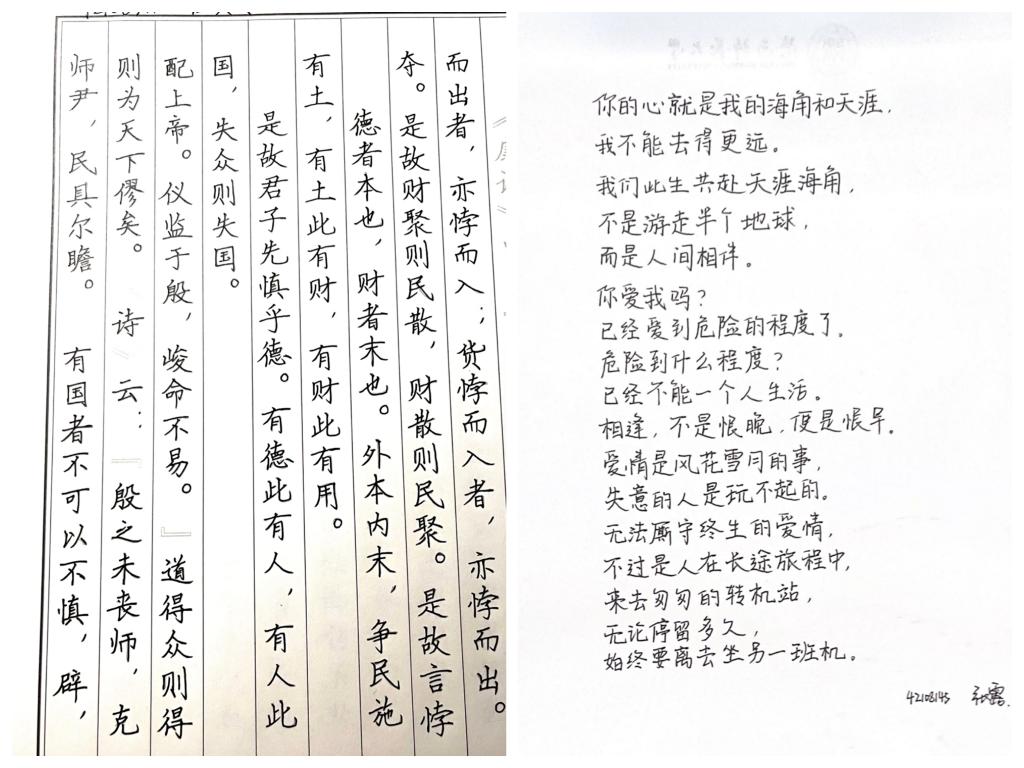 师尹，民具尔瞻。 有国者不可以不慎，辟，
则为天下僇矣。 诗云：『殷之未丧师，克
配上帝。仪监于殷，峻命不易。』道得众则得
国，失众则失国。
是故君子先慎乎德。有德此有人，有人此
有土，有土此有财，有财此有用。
德者本也，财者末也。外本内末，争民施
夺。是故财聚则民散，财散则民聚。是故言悖
而出者，亦悖而入；货悖而入者，亦悖而出。
你的心就是我的海角和天涯，
我不能去得更远。
我们此生共赴天涯海角，
不是游走半个地球，
而是人间相伴。
你爱我吗？
已经爱到危险的程度了。
危险到什么程度？
已经不能一个人生活。
相逢，不是恨晚，便是恨早。
爱情是风花雪月的事，
失意的人是玩不起的。
无法厮守终生的爱情，
不过是人在长途旅程中，
来去匆匆的转机站，
无论停留多久，
始终要离去坐另一班机。
42108143 张露